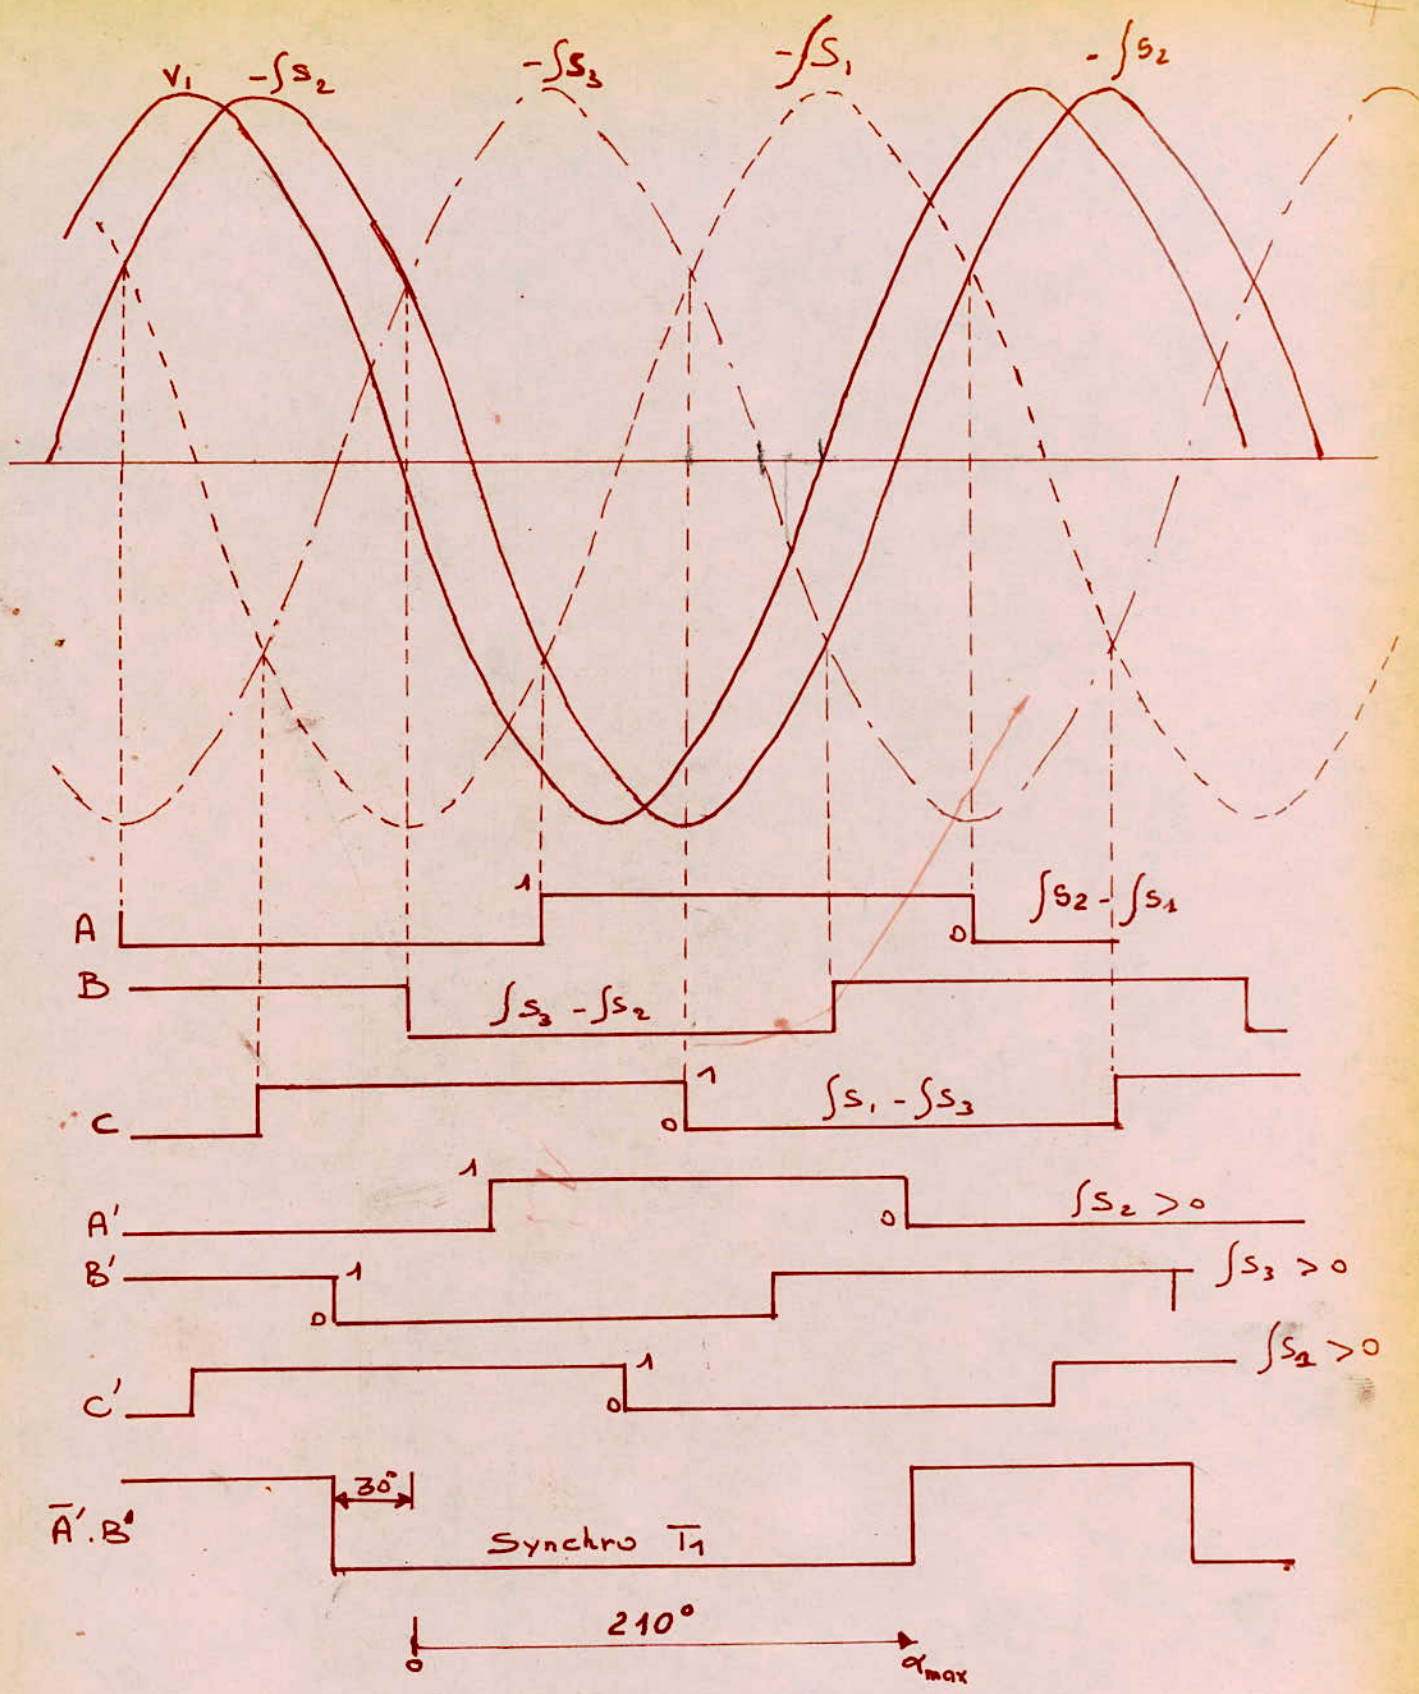 V₁ -∫S₂ -∫S₃ -∫S₁ -∫S₂
A 1 0 ∫S₂ - ∫S₁
B ∫S₃ - ∫S₂
C 1 0 ∫S₁ - ∫S₃
A' 1 0 ∫S₂ > 0
B' 1 0 ∫S₃ > 0
C' 1 0 ∫S₁ > 0
A̅'.B' 30° Synchro T̅₁
210°
0 αmax